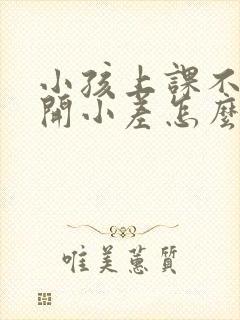 小孩上課不
開小差怎麼
唯美蕙質